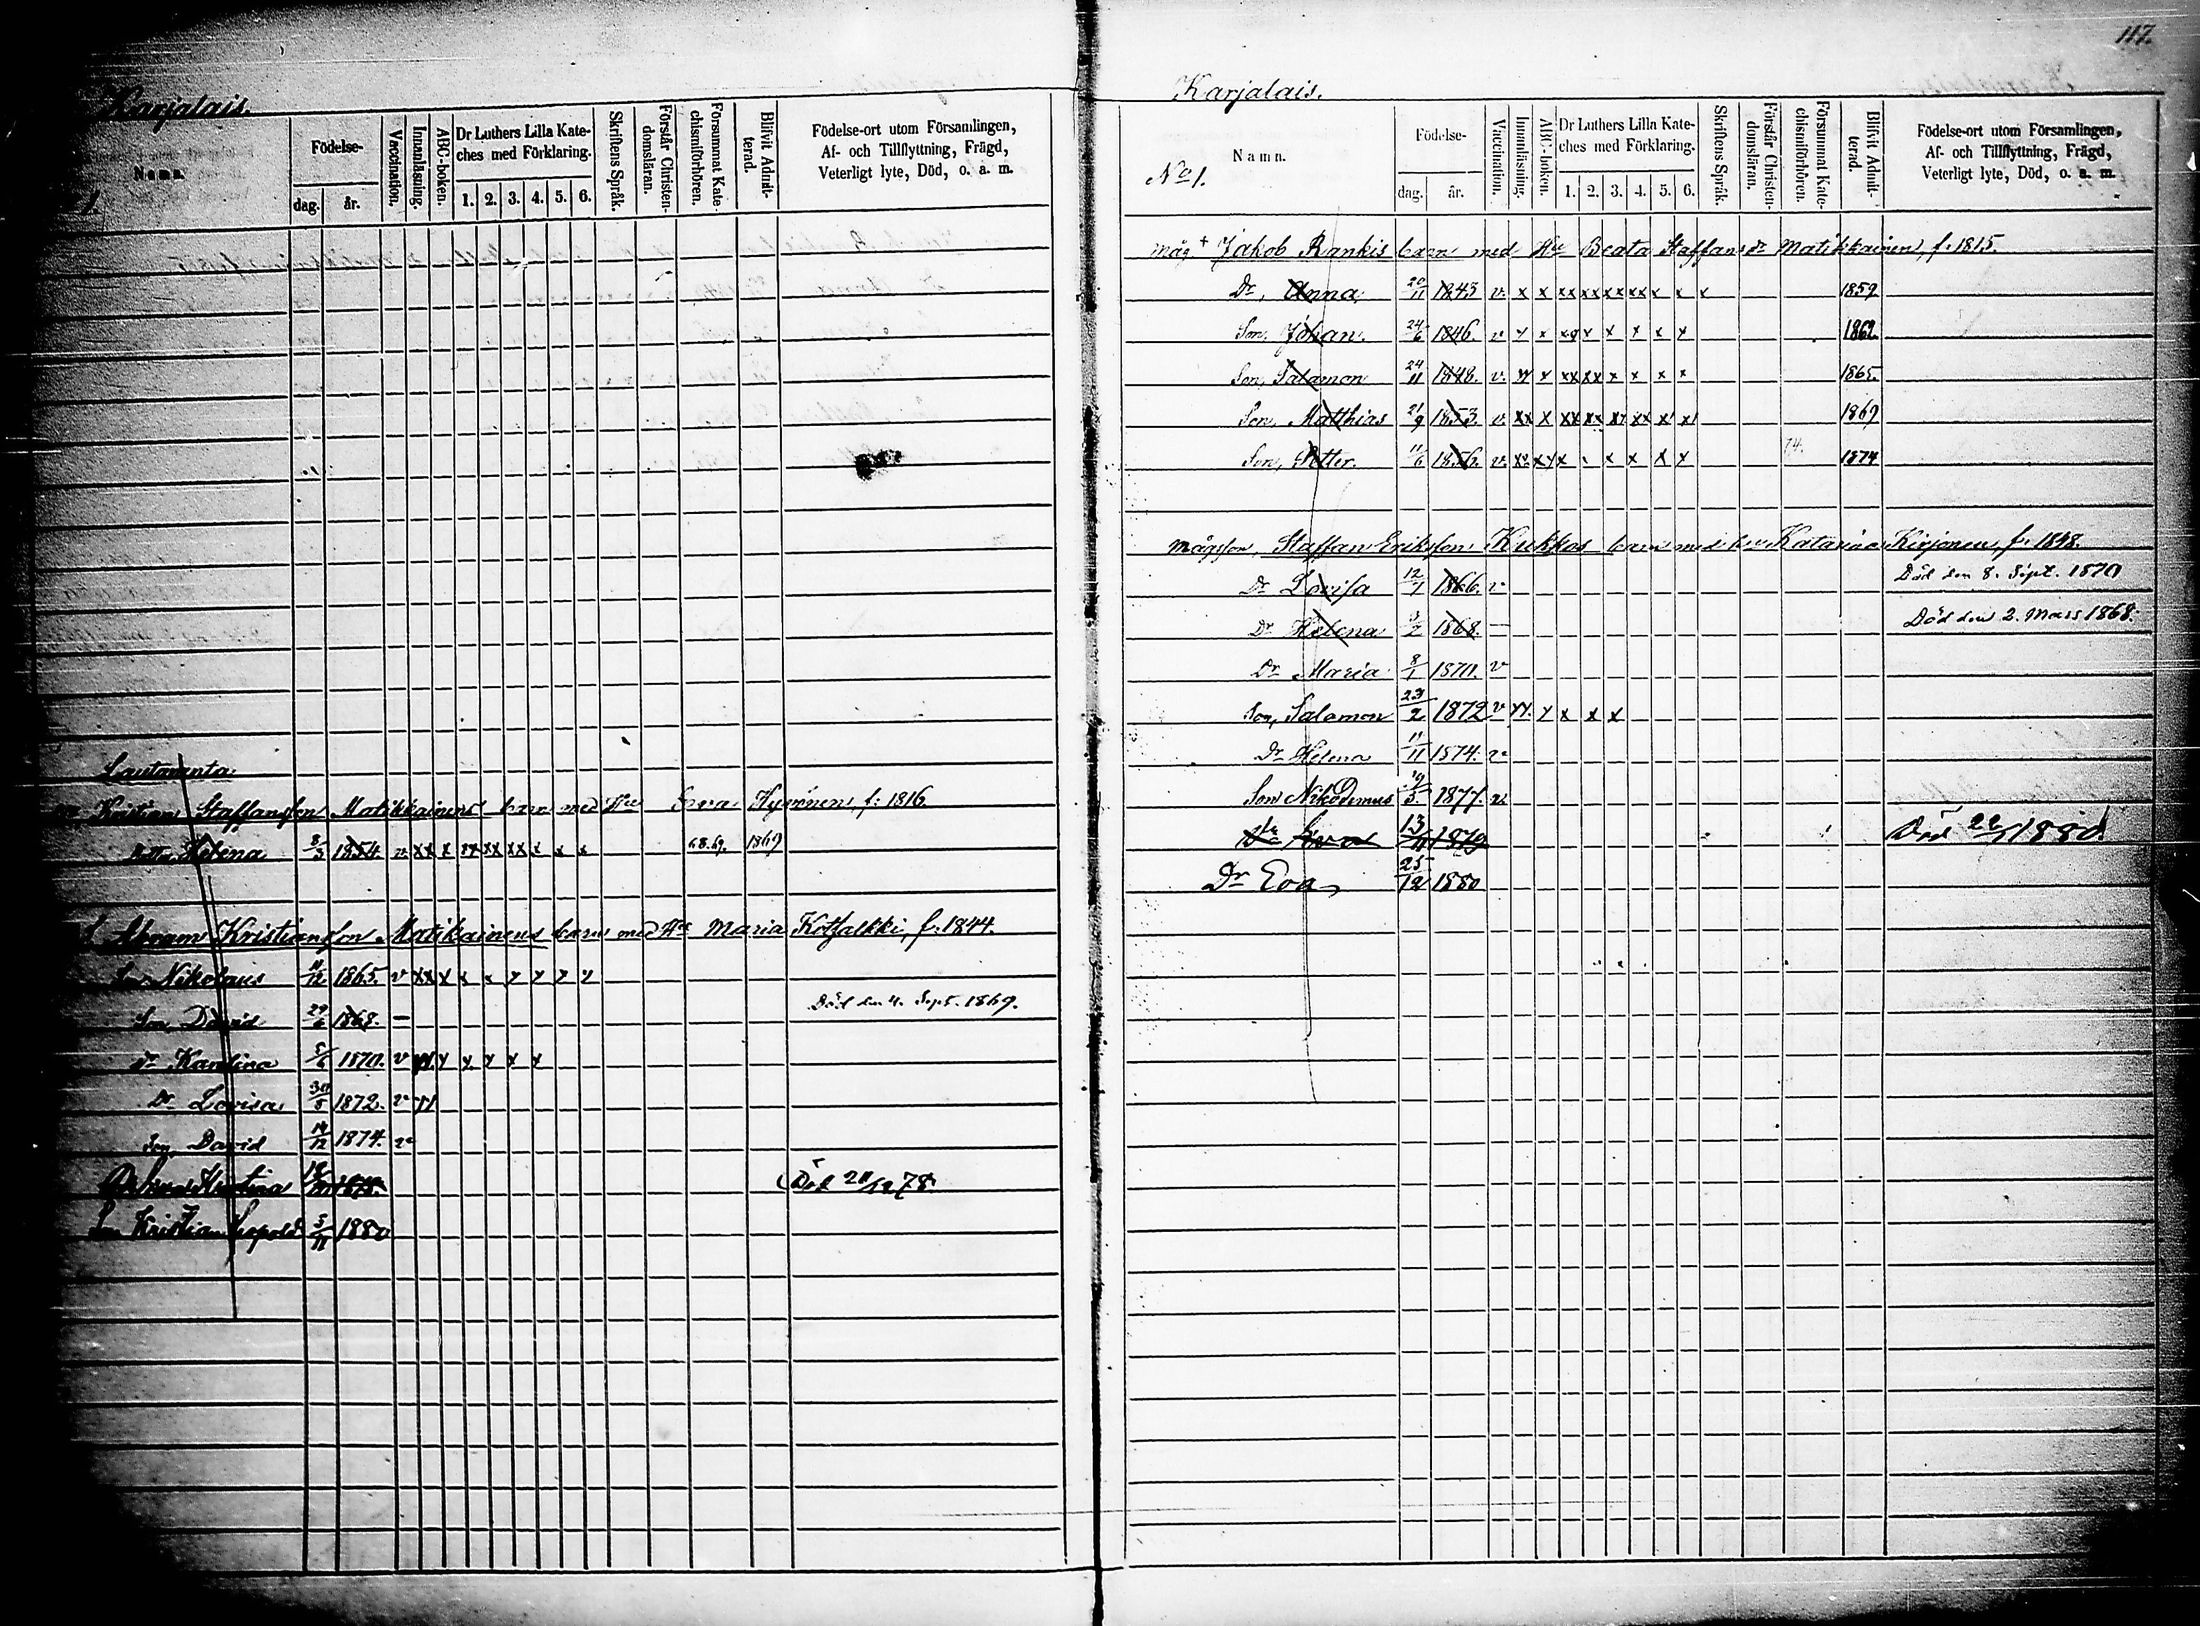 Karjalais.
Namn.
Födelse-
dag. år.
Vaccination.
Innanläsning.
ABC-boken.
Dr Luthers Lilla Kate-
ches med Förklaring.
1. 2. 3. 4. 5. 6.
Skriftens Språk.
Förstår Christen-
domsläran.
Försummat Kate-
chismiförhören.
Blifvit Admit-
terad.
Födelse-ort utom Församlingen,
Af- och Tillflyttning, Frägd,
Veterligt lyte, Död, o. a. m.
1.
Lautaranta
Kristian Staffansson Matikkainens barn med Hu Eva Hyvönen, f: 1816.
Helena 8/3 1854. v xx x xx xx xx x x x 68.69. 1869
Abram Kristiansson Matikainens barn med Hu Maria Kotsalkki, f. 1844.
Son Nikolaus 11/12 1865. v xx x x x x x x x
Son, David 29/6 1868. — Död den 4. Sept. 1869.
Dr Karolina 5/6 1870. v xx x x x x x
Dr Lovisa 30/8 1872. v xx
Son, David 14/12 1874. v
Död 20/12 78.
Son Kristian Leopold 5/11 1880
117.
Karjalais.
No 1.
Namn.
Födelse-
dag. år.
Vaccination.
Innanläsning.
ABC-boken.
Dr Luthers Lilla Kate-
ches med Förklaring.
1. 2. 3. 4. 5. 6.
Skriftens Språk.
Förstår Christen-
domsläran.
Försummat Kate-
chismiförhören.
Blifvit Admit-
terad.
Födelse-ort utom Församlingen,
Af- och Tillflyttning, Frägd,
Veterligt lyte, Död, o. a. m.
Måg + Jakob Rankis barn med Hu Beata Staffans dr Matikkainen, f. 1815.
Dr, Anna 20/11 1843 v. x x xx xx xx xx x x x 1859
Son, Johan. 24/6 1846. v x x xx x x x x x 1862.
Son, Salamon 24/11 1848. v. xx x xx xx x x x x 1865.
Son, Matthias 21/9 1853. v. xx x xx xx xx xx x x 1869
Son, Petter. 11/6 1856. v. xx xx x x x x x x 74. 1874
Mågson, Staffan Eriksson Kukkos barn med hu Katarina Kirjonen, f. 1848.
Dr Lovisa 12/7 1866. v Död den 8. Sept. 1870
Dr Helena 3/2 1868. — Död den 2. Mars 1868.
Dr Maria 8/1 1870. v
Son, Salamon 23/2 1872 v xx. x x x x
Dr Helena 11/11 1874. v
Son Nikodemus 19/3. 1877. v
Dr Eva 13/11 1879 Död 22/1 1880
Dr Eva 25/12 1880